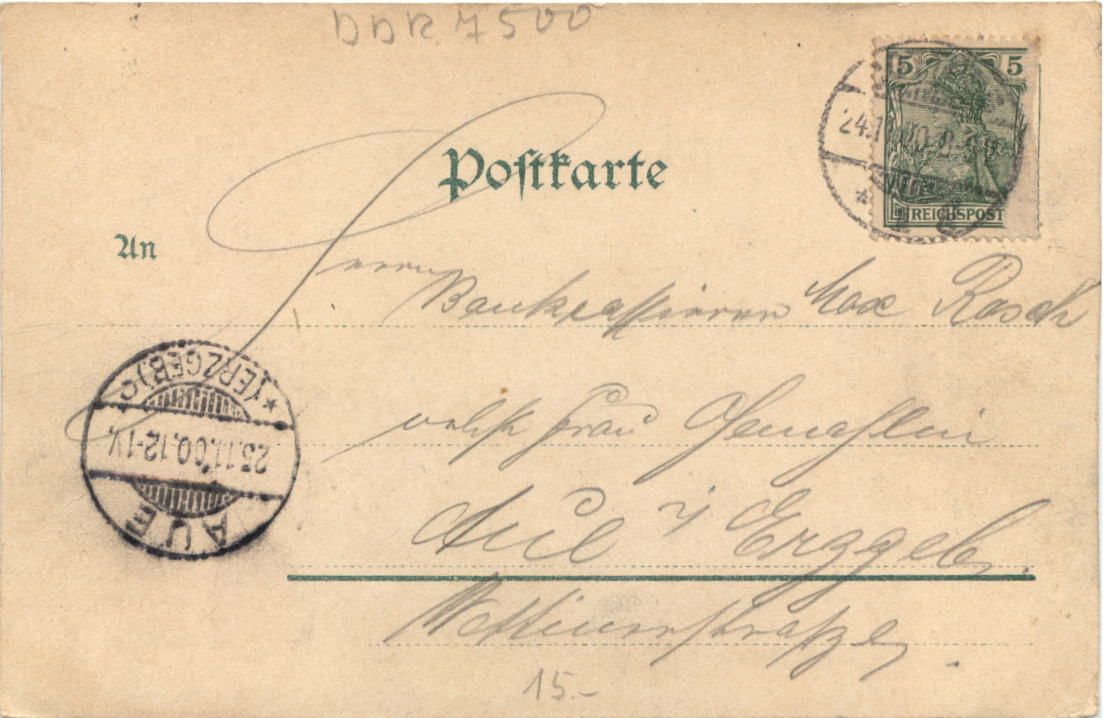 DDR 7500
5 5
24.11.00
REICHSPOST
Postkarte
An
Herrn
Bankcassierer Max Rasch
nebst Frau Gemahlin
Aue i/ Erzgeb.
Wettinerstrasze
AUE
25.11.00.12-1V.
*(ERZGEB)C
15.-